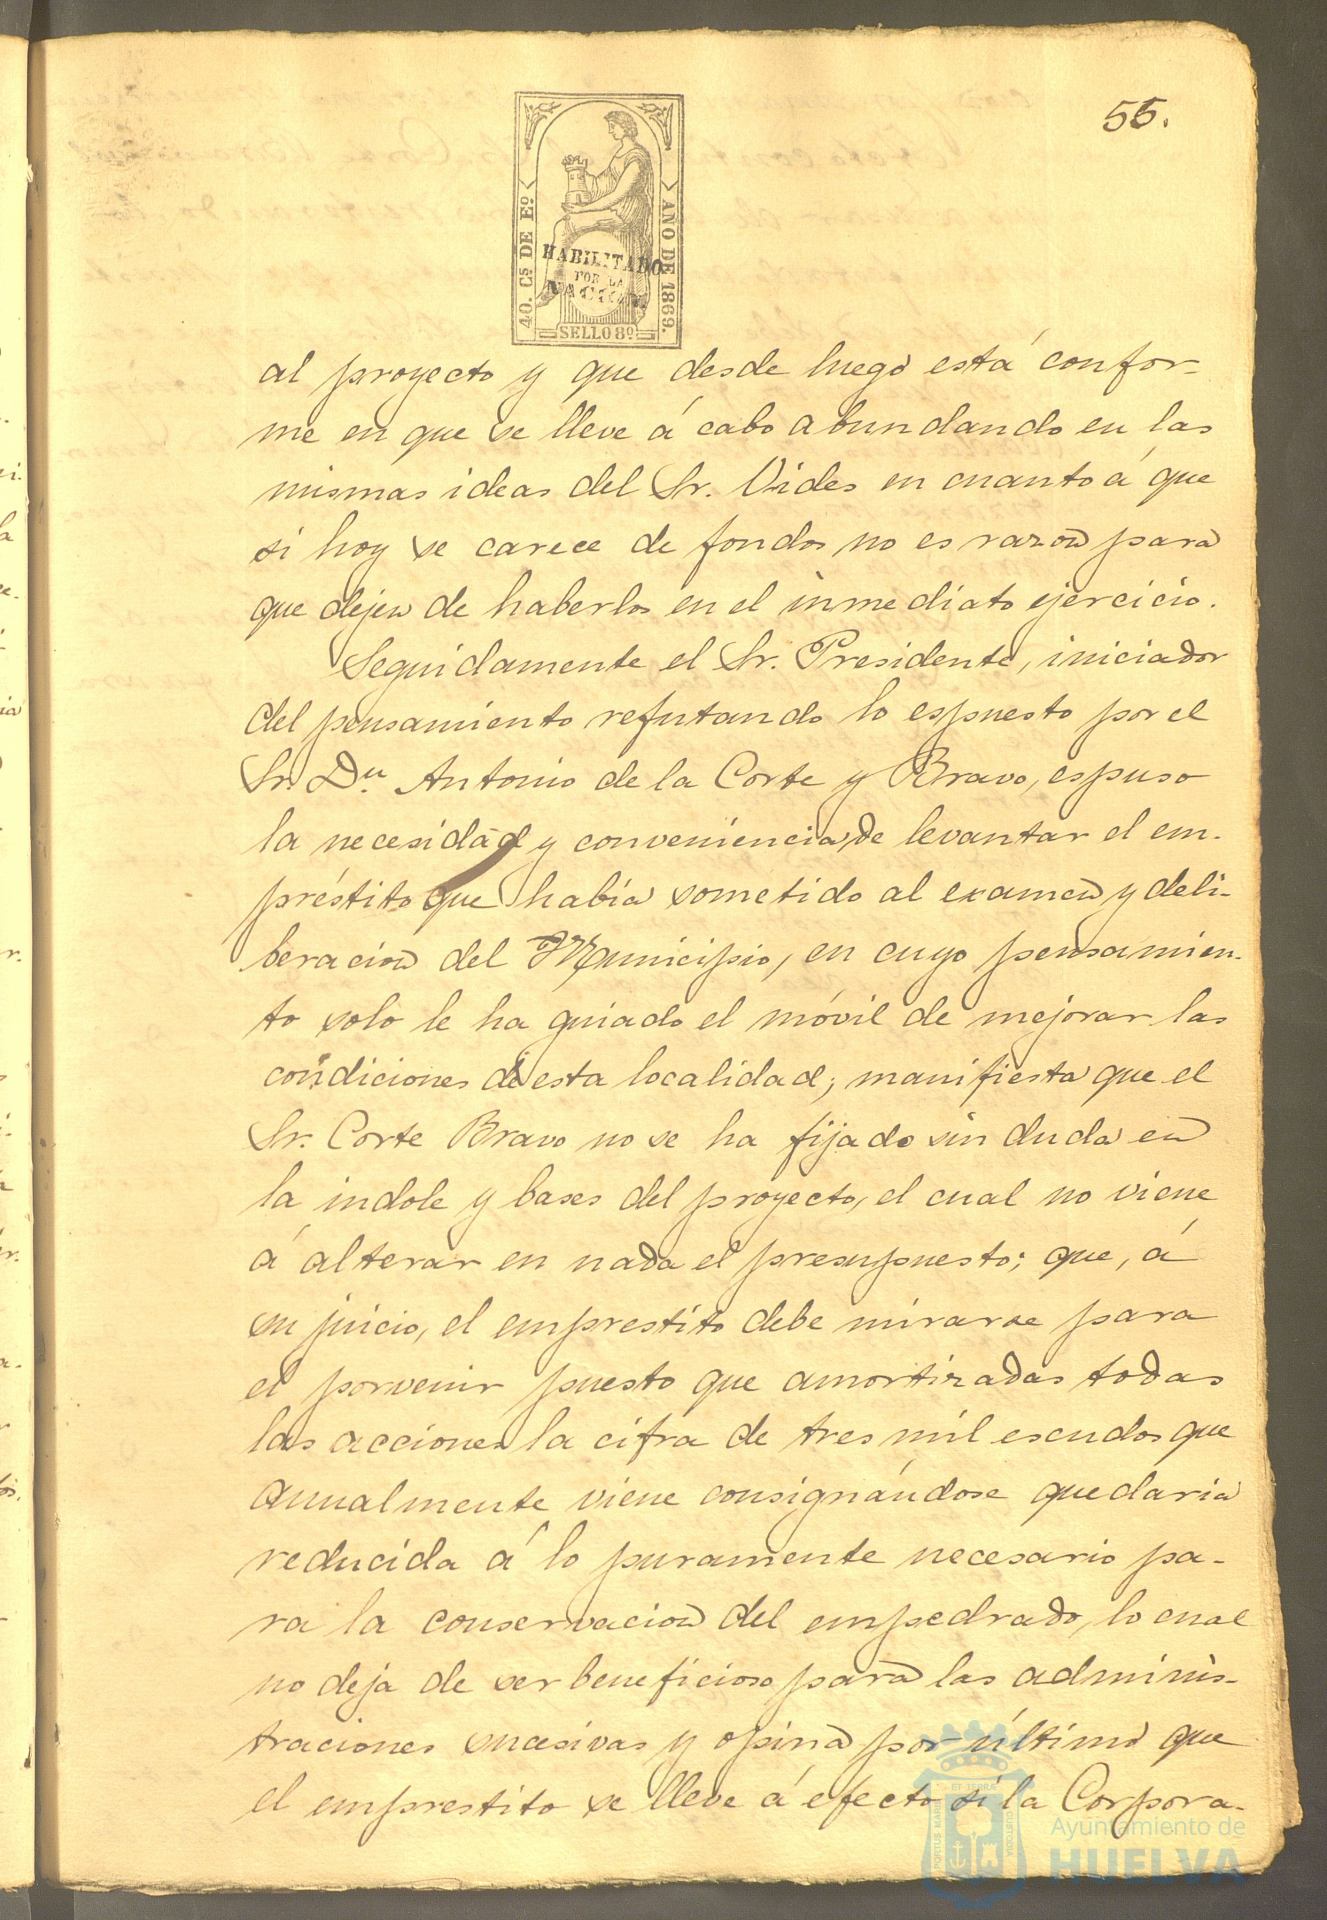 55.
40. Cs DE Eº
AÑO DE 1869.
HABILITADO
POR LA
NACION
SELLO 8º
al proyecto y que desde luego está confor-
me en que se lleve á cabo abundando en las
mismas ideas del Sr. Vides en cuanto á que
si hoy se carece de fondos no es razon para
que dejen de haberlos en el inmediato ejercicio.
Seguidamente el Sr. Presidente, iniciador
del pensamiento refutando lo espuesto por el
Sr. Dn. Antonio de la Corte y Bravo, espuso
la necesidad y conveniencia de levantar el em-
préstito que había sometido al examen y deli-
beracion del Municipio, en cuyo pensamien-
to solo le ha guiado el móvil de mejorar las
condiciones de esta localidad; manifiesta que el
Sr. Corte Bravo no se ha fijado sin duda en
la indole y bases del proyecto, el cual no viene
á alterar en nada el presupuesto; que, á
su juicio, el emprestito debe mirarse para
el porvenir puesto que amortizadas todas
las acciones la cifra de tres mil escudos que
anualmente viene consignándose quedaria
reducida á lo puramente necesario pa-
ra la conservacion del empedrado, lo cual
no deja de ser beneficioso para las adminis-
traciones sucesivas y opina por último que
el emprestito se lleve á efecto si la Corpora-
PORTUS MARIS
ET TERRÆ
CUSTODIA
Ayuntamiento de
HUELVA